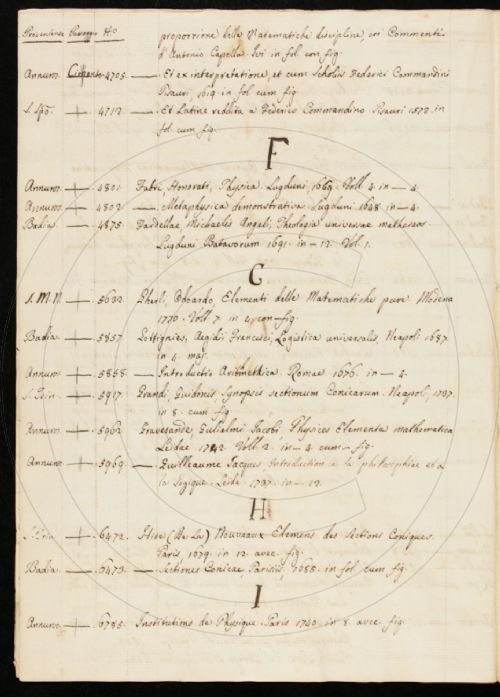 Provenienze Passaggio No proporzione delle Matematiche discipline coi Commenti
d'Antonio Capella. Ivi in fol con fig.
Annunz. 4705. — Et ex interpretatione, et cum Scholiis Federici Commandini
Pisauri, 1619 in fol cum fig
S. Spo. + 4712. — Et Latine reddita a Federico Commandino Pisauri 1572. in
fol. cum fig.
F
Annunz. + 4801. Fabri, Honorati, Physica. Lugduni, 1669. Voll. 4. in — 4.
Annunz. + 4802. — Metaphysica demonstrativa. Lugduni 1648. in — 4.
Badia. + 4875. Fardellae, Michaelis Angeli, Theologia universae matheseos
Lugduni Batavorum 1691. in — 12. Vol. 1.
G
S. M. N. + 5632. Gherli, Odoardo, Elementi delle Matematiche pure. Modena
1770. Voll. 7. in 4. con fig.
Badia + 5857. Gottignies, Aegidii Francisci, Logistica universalis, Neapoli 1687.
in 4. maj.
Annunz. + 5858. — Introductio Arithmetica. Romae 1676. in — 4.
S. Trin. + 5917. Grandi, Guidonis, Synopsis sectionum Conicarum. Neapoli, 1737.
in 8. cum fig
Annunz. + 5962. Gravesande, Gulielmi Jacobi, Physices Elementa mathematica
Leidae 1742. Voll. 2. in — 4. cum — fig.
Annunz. + 5969. — Guilleaume Jacques, Introduction à la philosophiae et a
la logique. Leide. 1737. in — 12.
H
S. Trin + 6472. Hire (De La) Nouveaux Elemens des Sections Coniques.
Paris, 1679. in 12. avec. fig.
Badia. + 6473. — Sectiones Conicae Parisiis, 1685. in fol. cum fig.
I
Annunz. + 6785. Institutions de Physique. Paris 1740. in 8. avec. fig.